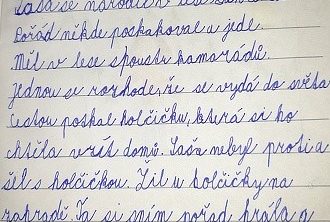 Saša se narodil v lese
Pořád někde poskakoval a jedl.
Měl v lese spoustu kamarádů.
Jednou se rozhodl, že se vydá do světa
Cestou poskal holčičku, která si ho
chtěla vzít domů. Saša nebyl proti a
šel s holčičkou. Žil u holčičky na
zahradě. Ta si s ním pořád hrála a